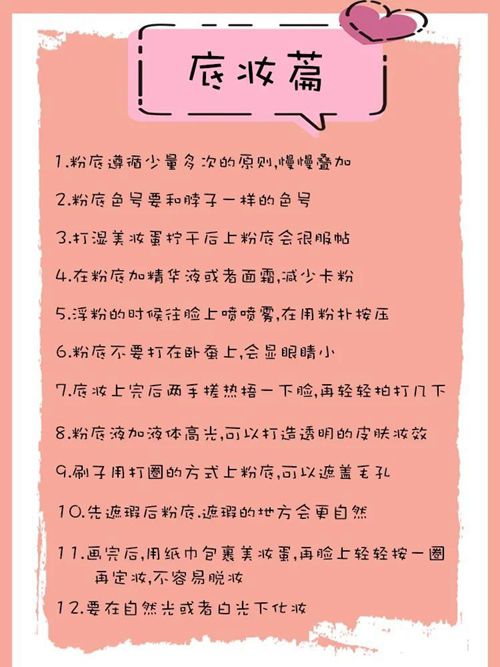 底妆篇
1.粉底遵循少量多次的原则,慢慢叠加
2.粉底色号要和脖子一样的色号
3.打湿美妆蛋拧干后上粉底会很服帖
4.在粉底加精华液或者面霜,减少卡粉
5.浮粉的时候往脸上喷喷雾,在用粉扑按压
6.粉底不要打在卧蚕上,会显眼睛小
7.底妆上完后两手搓热捂一下脸,再轻轻拍打几下
8.粉底液加液体高光,可以打造透明的皮肤妆效
9.刷子用打圈的方式上粉底,可以遮盖毛孔
10.先遮瑕后粉底.遮瑕的地方会更自然
11.画完后,用纸巾包裹美妆蛋,再脸上轻轻按一圈
再定妆,不容易脱妆
12.要在自然光或者白光下化妆